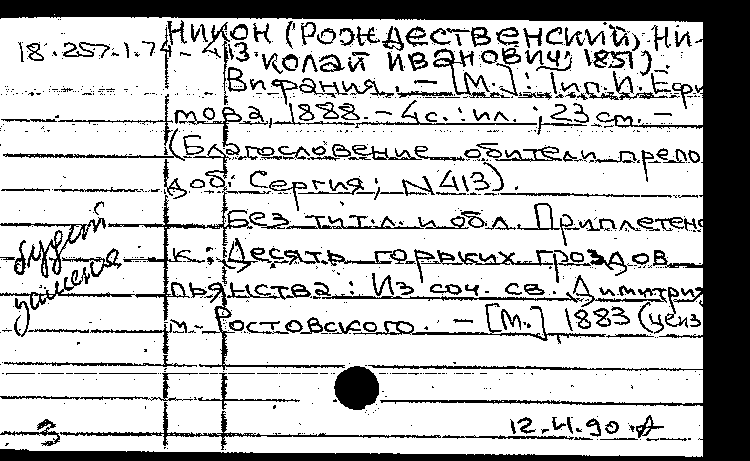 НИКОН (РОЖДЕСТВЕНСКИЙ, НИ-
18.257.1.74-413. КОЛАЙ ИВАНОВИЧ; 1851).
Вифания. — [М.]: Тип. И. Ефи
мова, 1888. - 4с.: ил. ; 23 см. —
(Благословение обители препо
доб. Сергия; N 413).
Без тит. л. и обл. Приплетено
к: Десять горьких гроздов
пьянства: Из соч. св. Димитрия
м. Ростовского. — [М.], 1883 (ценз
будет
замена
3
12.VI.90